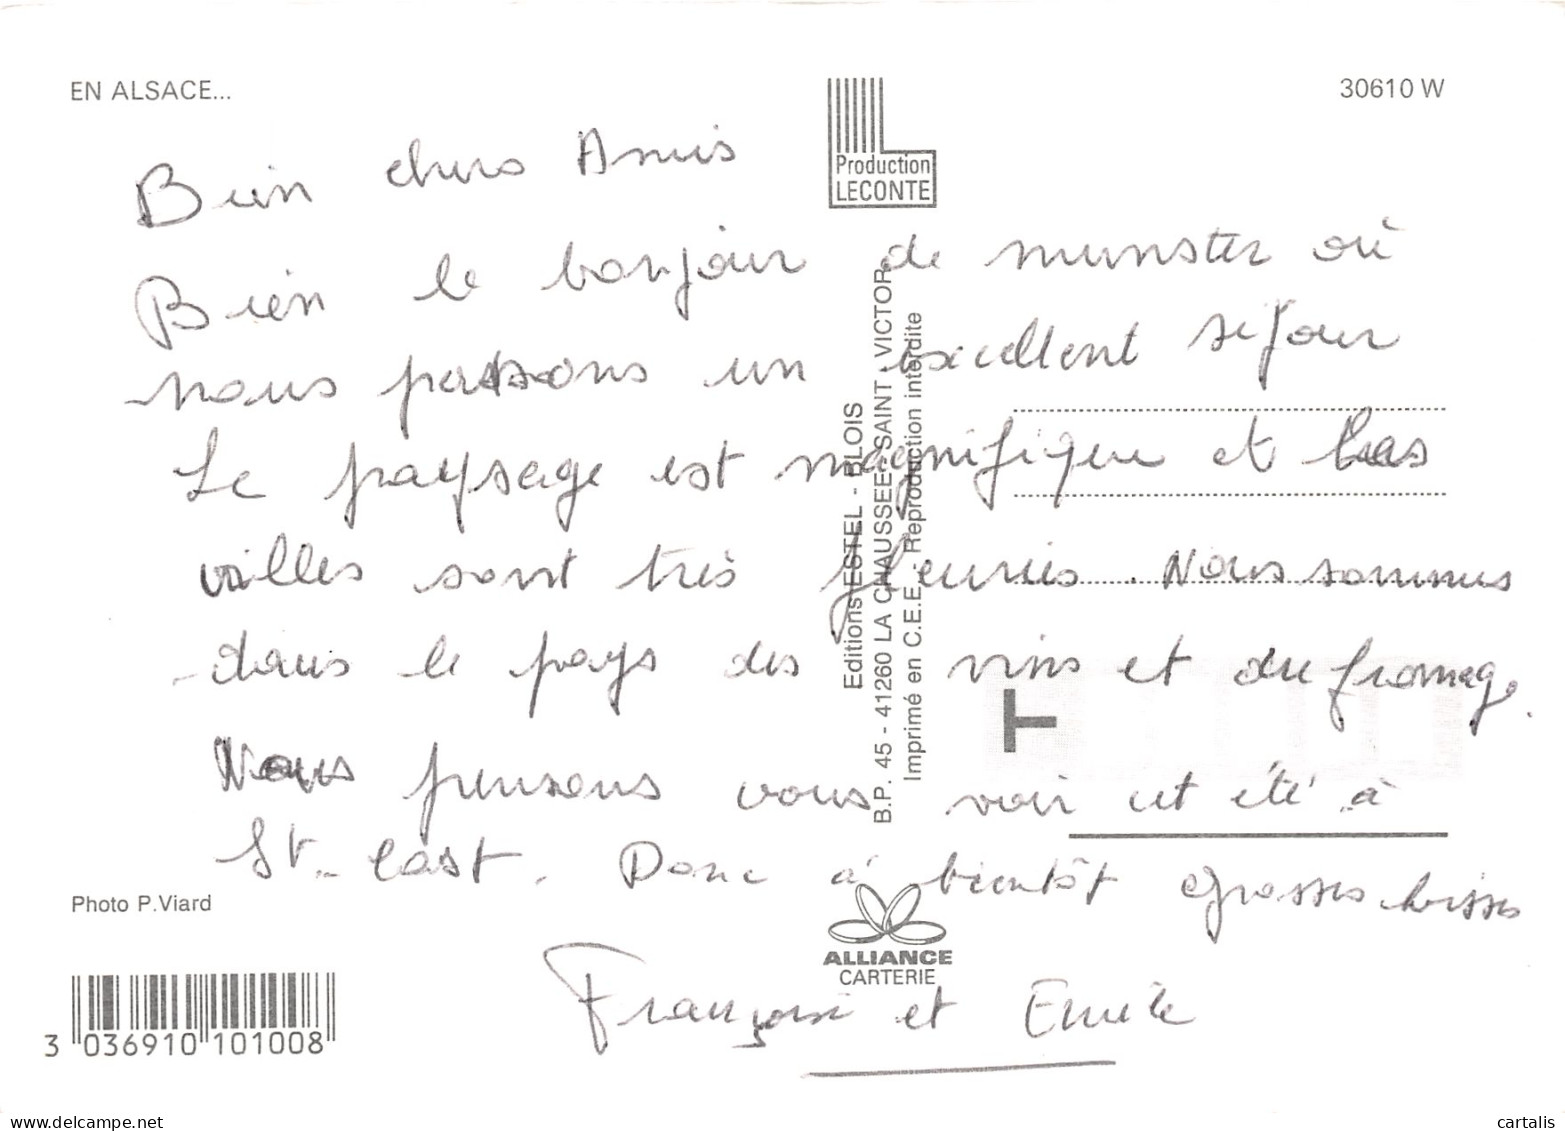 EN ALSACE...
30610 W
Production
LECONTE
Bien chers Amis
Bien le bonjour de munster où
nous passons un excellent séjour
Le paysage est magnifique et les
villes sont très fleuries. Nous sommes
dans le pays des vins et du fromage.
Nous pensons vous voir cet été à
St. Cast. Donc à bientôt grosses bises
Françoise et Emile
Editions ESTEL - BLOIS
B.P. 45 - 41260 LA CHAUSSEE SAINT VICTOR
Imprimé en C.E.E. - Reproduction interdite
T
Photo P.Viard
ALLIANCE
CARTERIE
3 036910 101008
delcampe.net
cartalis